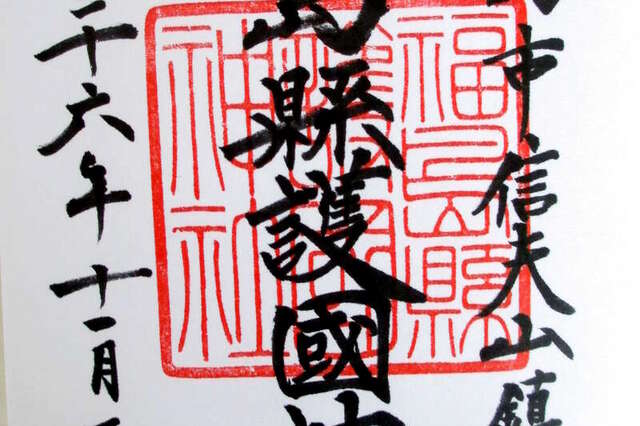 市信夫山鎮
島縣護國神
二十六年十一月
福島縣
護國
神社